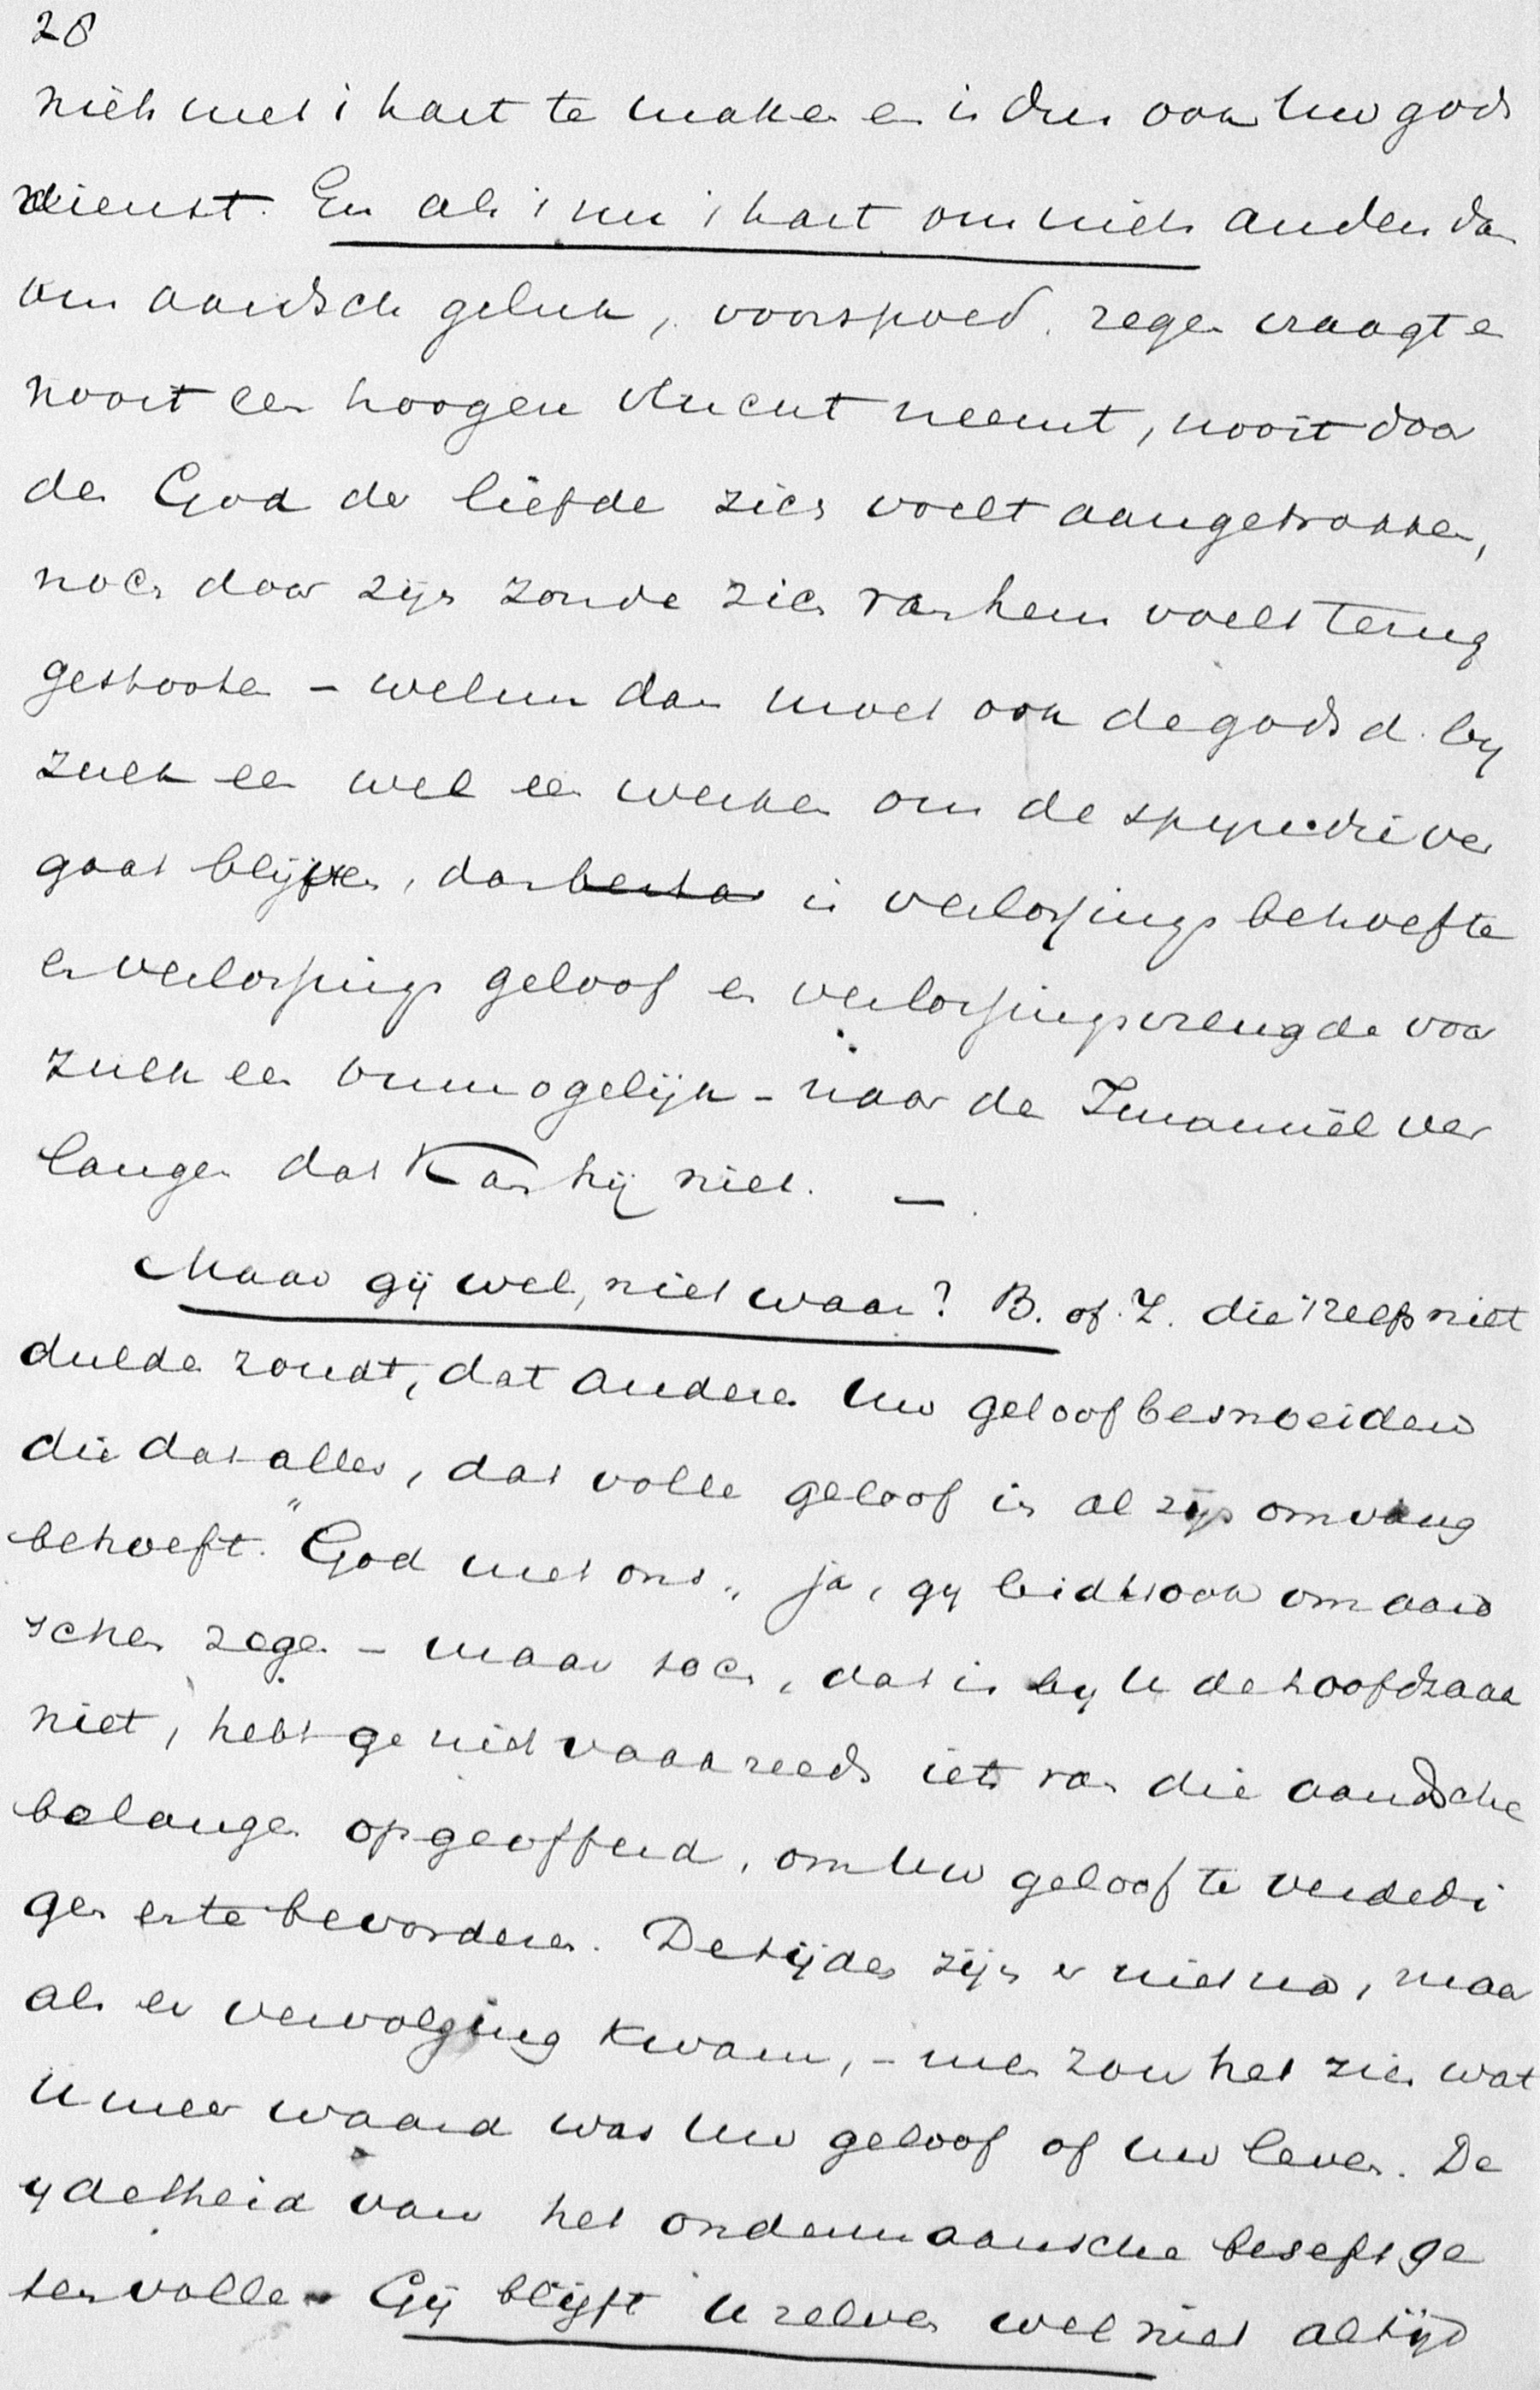 28
niets met 't hart te maken en is dus ook Uw gods
dienst. En als 't nu 't hart om niets anders dan
om aardsch geluk, voorspoed, zegen vraagt en
nooit een hoogen vlucht neemt, nooit door
den God der liefde zich voelt aangetrokken,
noch door zijn zonde zich van hem voelt terug
gestooten – welnu dan moet ook de godsd. by
zulk een wel een werken om de spijze die ver
gaat blijven, dan is verlossings behoefte
en verlossings geloof en verlossingsvreugde voor
zulk een onmogelijk – naar de Immanuël ver
langen dat kan hij niet. –
Maar gij wel, niet waar? B. of Z. die 't zelfs niet
dulden zoudt, dat anderen Uw geloof besnoeiden
die dat alles, dat volle geloof in al zijn omvang
behoeft. "God met ons" ja, gy bidt ook om aard
schen zegen – maar toch, dat is by U de hoofdzaak
niet, hebt ge niet vaak reeds iets van die aardsche
belangen opgeofferd, om Uw geloof te verdedi
gen en te bevorderen. De tijden zijn er niet na, maar
als er vervolging kwam, – men zou het zien wat
U meer waard was Uw geloof of uw leven. De
ydelheid van het ondermaansche beseft ge
ten volle – Gij blijft U zelven wel niet altijd